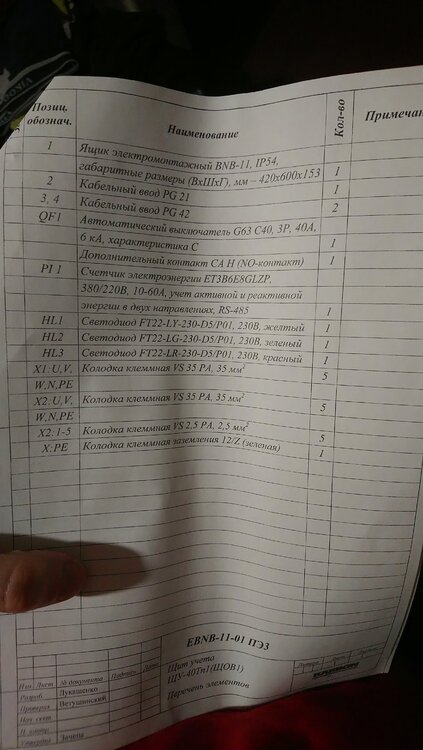 Позиц. обознач. Наименование Кол-во Примечан
1 Ящик электромонтажный BNB-11, IP54,
габаритные размеры (ВxШxГ), мм – 420x600x153 1
2 Кабельный ввод PG 21 1
3, 4 Кабельный ввод PG 42 2
QF1 Автоматический выключатель G63 C40, 3P, 40A,
6 кА, характеристика С 1
Дополнительный контакт CA H (NO-контакт) 1
PI 1 Счетчик электроэнергии ET3B6E8GLZP,
380/220В, 10-60А, учет активной и реактивной
энергии в двух направлениях, RS-485 1
HL1 Светодиод FT22-LY-230-D5/P01, 230В, желтый 1
HL2 Светодиод FT22-LG-230-D5/P01, 230В, зеленый 1
HL3 Светодиод FT22-LR-230-D5/P01, 230В, красный 1
X1: U,V, Колодка клеммная VS 35 PA, 35 мм² 5
W,N,PE
X2: U,V, Колодка клеммная VS 35 PA, 35 мм² 5
W,N,PE
X2: 1-5 Колодка клеммная VS 2,5 PA, 2,5 мм² 5
X:PE Колодка клеммная заземления 12/Z (зеленая) 1
EBNB-11-01 ПЭ3
Изм. Лист № документа Подпись Дата
Разраб. Лукашенко
Проверил Ветушинский
Нач. сект.
Н. контр.
Утвердил
Щит учета
ЩУ-40Тп1(ЩОВ1)
Перечень элементов